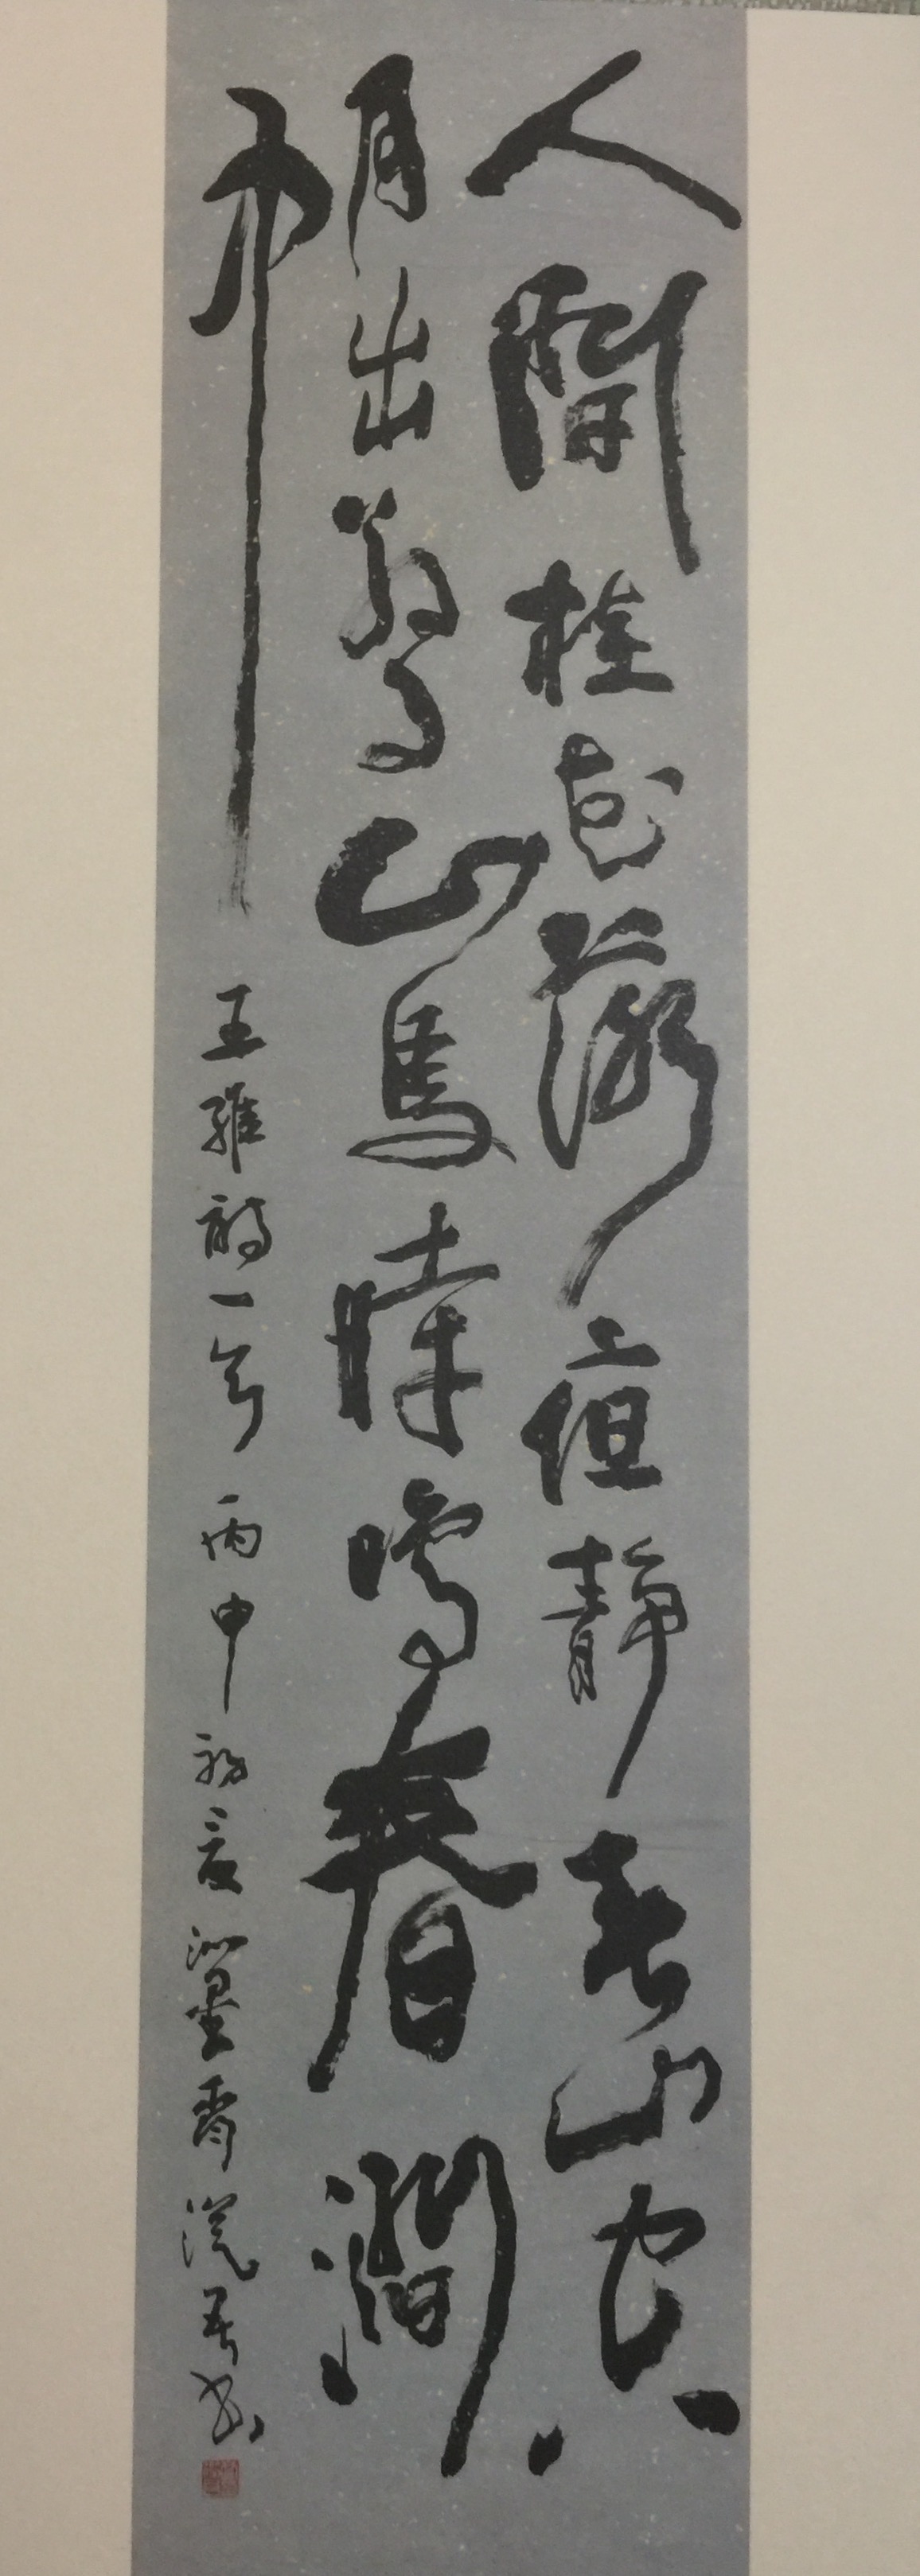 人閒桂花落夜静春山空
月出驚山鳥時鳴春澗
中 王維詩一首 丙申初夏 墨 書